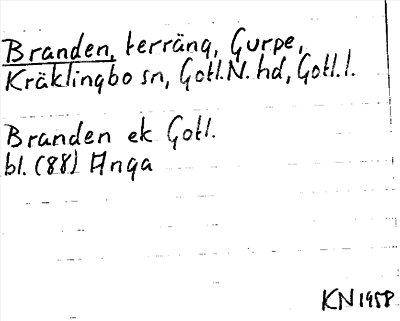 Branden, terräng, Gurpe,
Kräklingbo sn, Gotl.N. hd, Gotl.l.
Branden ek Gotl.
bl. (88) Anga
KN 1958